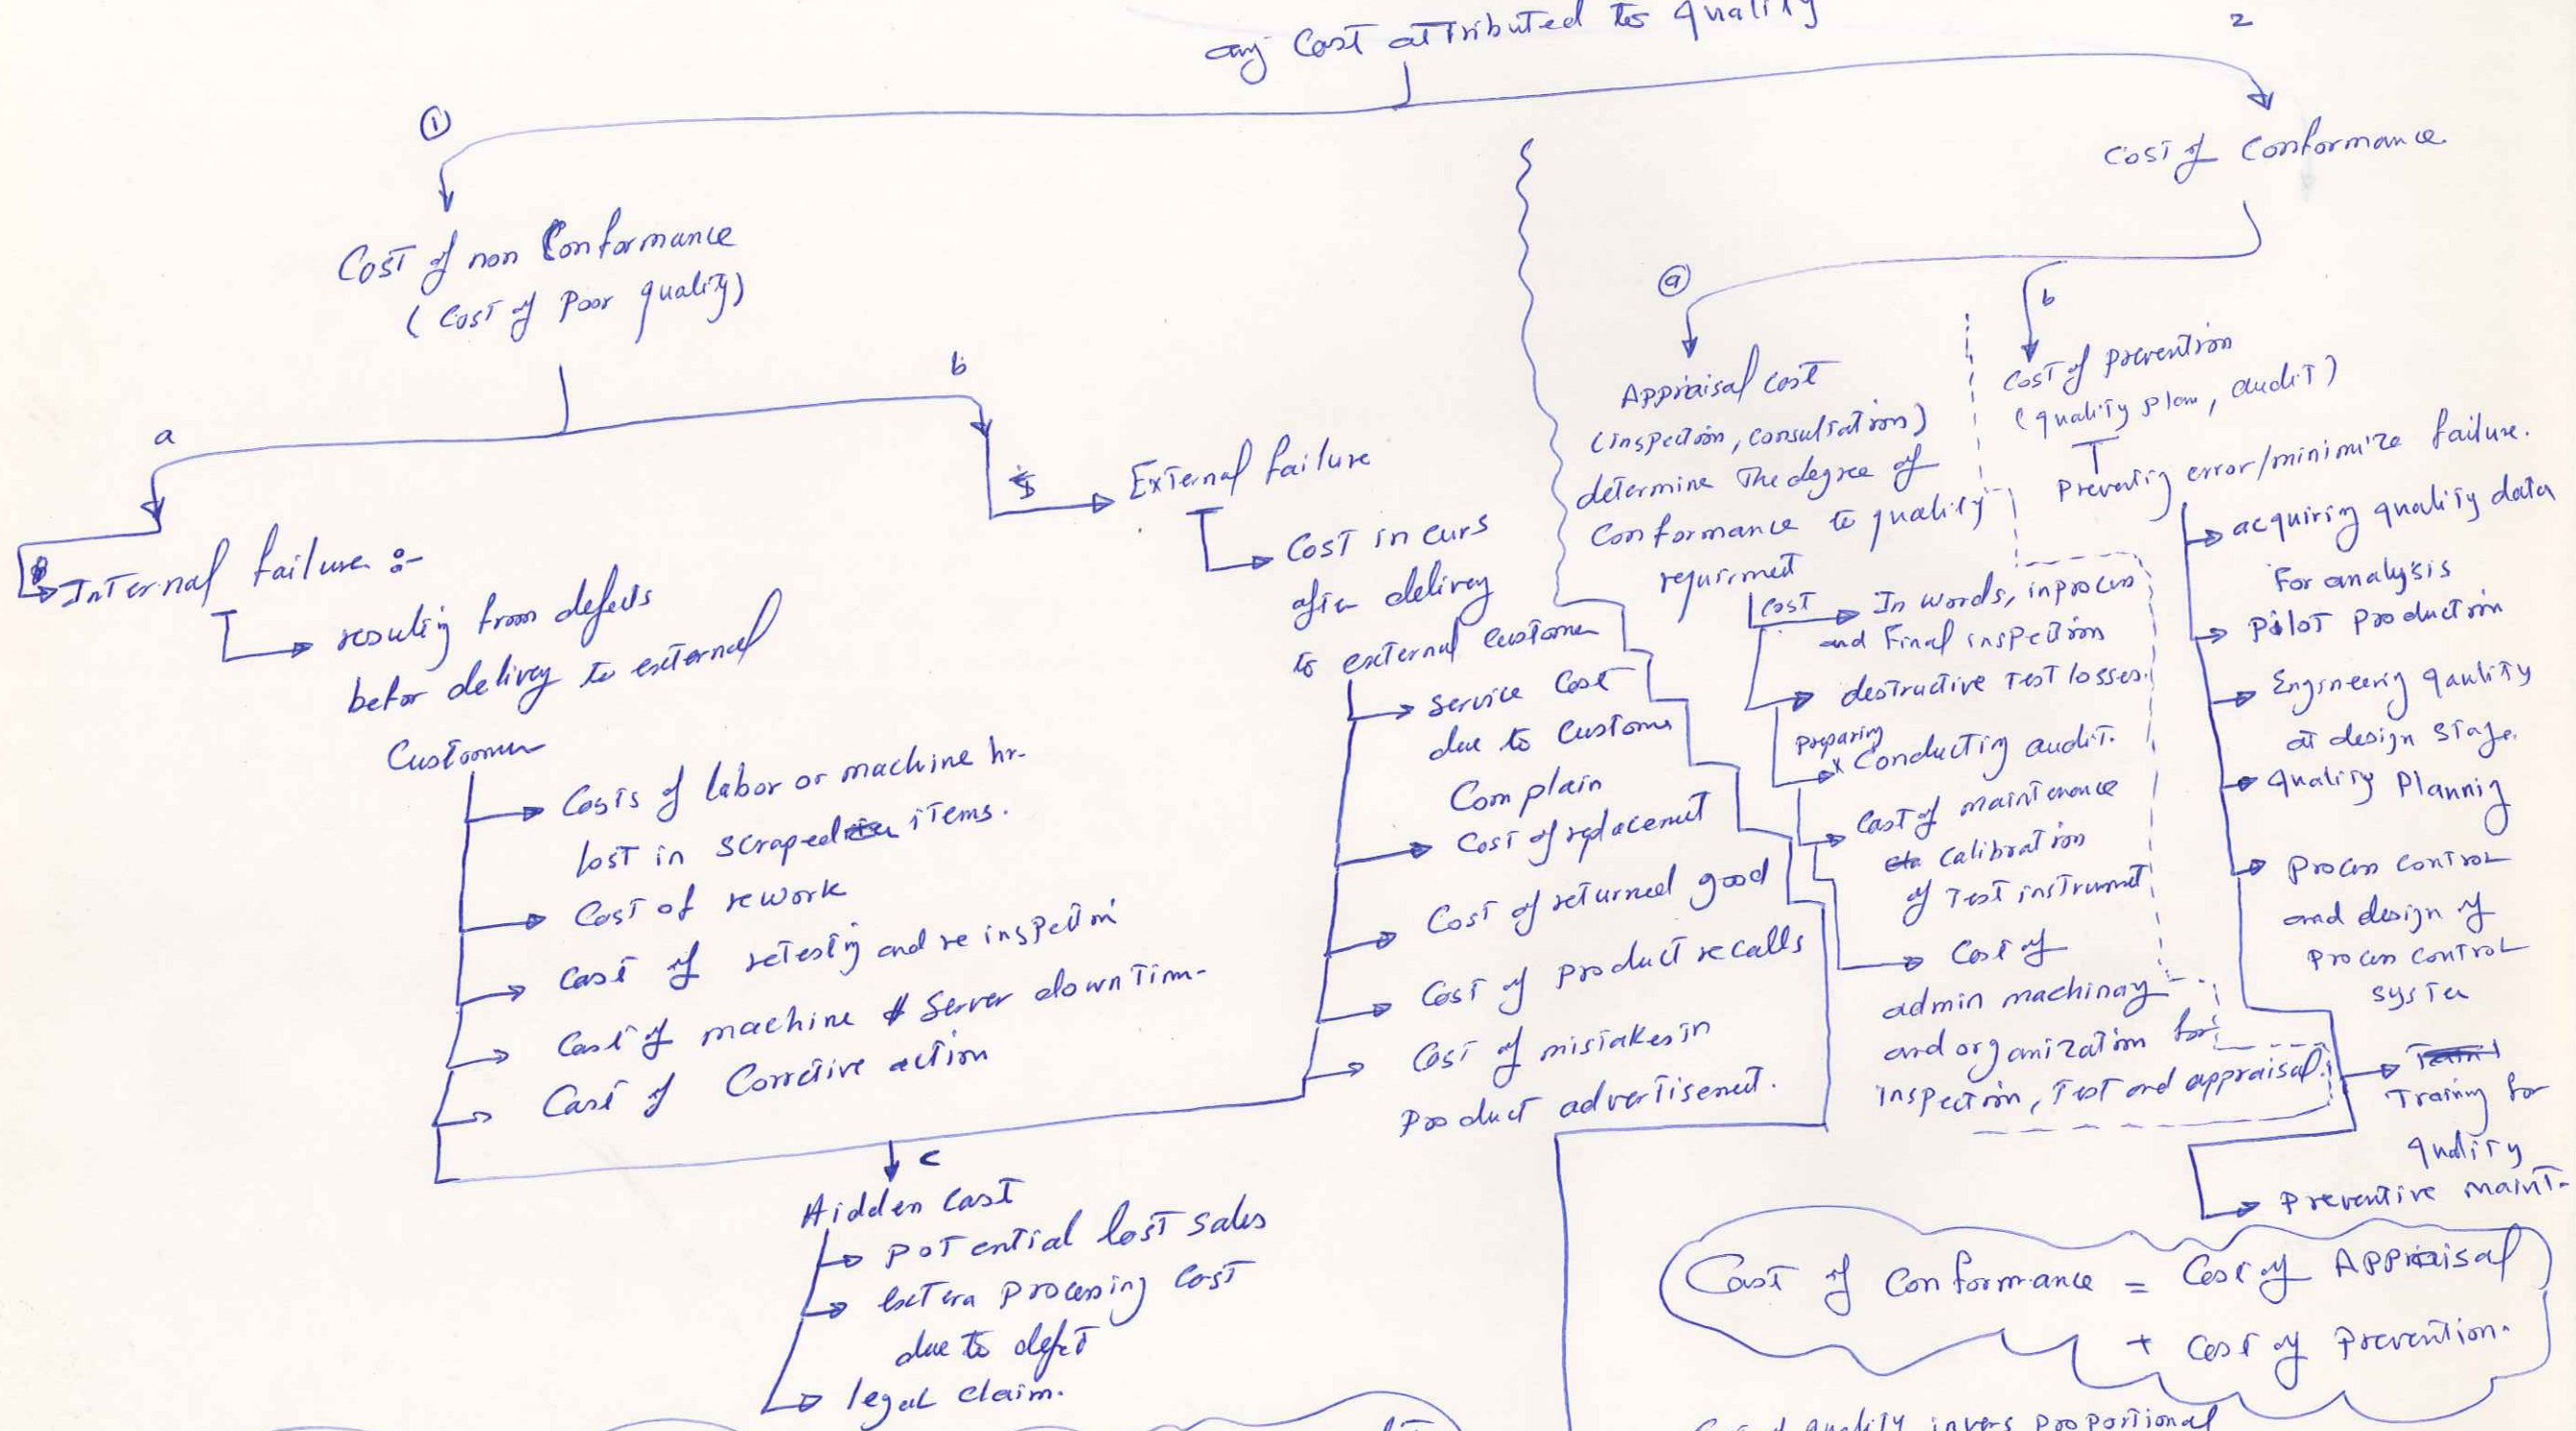 any Cost attributed to quality
2
①
Cost of Conformance
Cost of non Conformance
(Cost of Poor quality)
a
b
Internal failure :-
resulting from defects
befor delivery to external
Customer
Costs of labor or machine hr.
lost in scraped items.
Cost of rework
Cost of retesting and re inspection
Cost of machine & Server down Time
Cost of Corrective action
External failure
Cost incurs
after delivery
to external customer
Service Cost
due to Customer
Complain
Cost of replacement
Cost of returned good
Cost of product recalls
Cost of mistakes in
Product advertisement.
c
Hidden Cost
potential lost sales
extera processing cost
due to defect
legal claim.
ⓐ
Appraisal cost
(inspection, consultation)
determine The degree of
Conformance to quality
requirment
Cost
In words, inprocess
and Final inspection
destructive test losses.
preparing
Conducting audit.
Cost of maintenance
calibration
of Test instrument
Cost of
admin machinary
and organization for
inspection, Test and appraisal.
b
Cost of prevention
(quality plan, audit)
Preventing error/minimize failure.
acquiring quality data
For analysis
Pilot production
Engineerig qaulity
at design stage.
quality Planning
Process control
and design of
process control
system
Training for
quality
Preventive maint.
Cost of Conformance = Cost of Appraisal
+ Cost of Prevention.
quality invers proportional